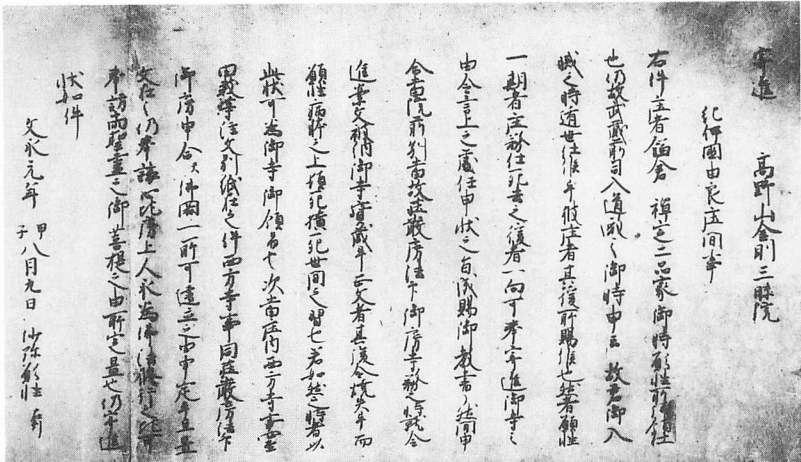 寄進 高野山金剛三昧院
紀伊國由良庄間事
右件庄者鎌倉禪定二品家御時願性所給仕
也仍故武蔵前司入道殿之御時申云故君御入
滅之時遁世仕候乎彼庄者其後所賜候也然者願性
一期者庄務仕死去之後者一向可奉寄進御寺之
由令言上之處任申状之旨成賜御教書了然間申
合當院前別当故荘嚴房法下御房寺務之時就令
進案文被納御寺寶蔵乎正文者其後令焼失乎而
願性病悩之上頓死横死世間之習也若如然之時者以
此状可為御寺御領者也次當庄内西方寺事
田数等注文別紙仕之件西方寺事同荘嚴房法下
御房申合天佛閣一所可建立之由申定乎
文在之仍奉譲心地房上人永為佛法
奉訪両聖霊之御菩提之由所定置也仍寄進
状如件
文永元年甲子八月九日 沙弥願性